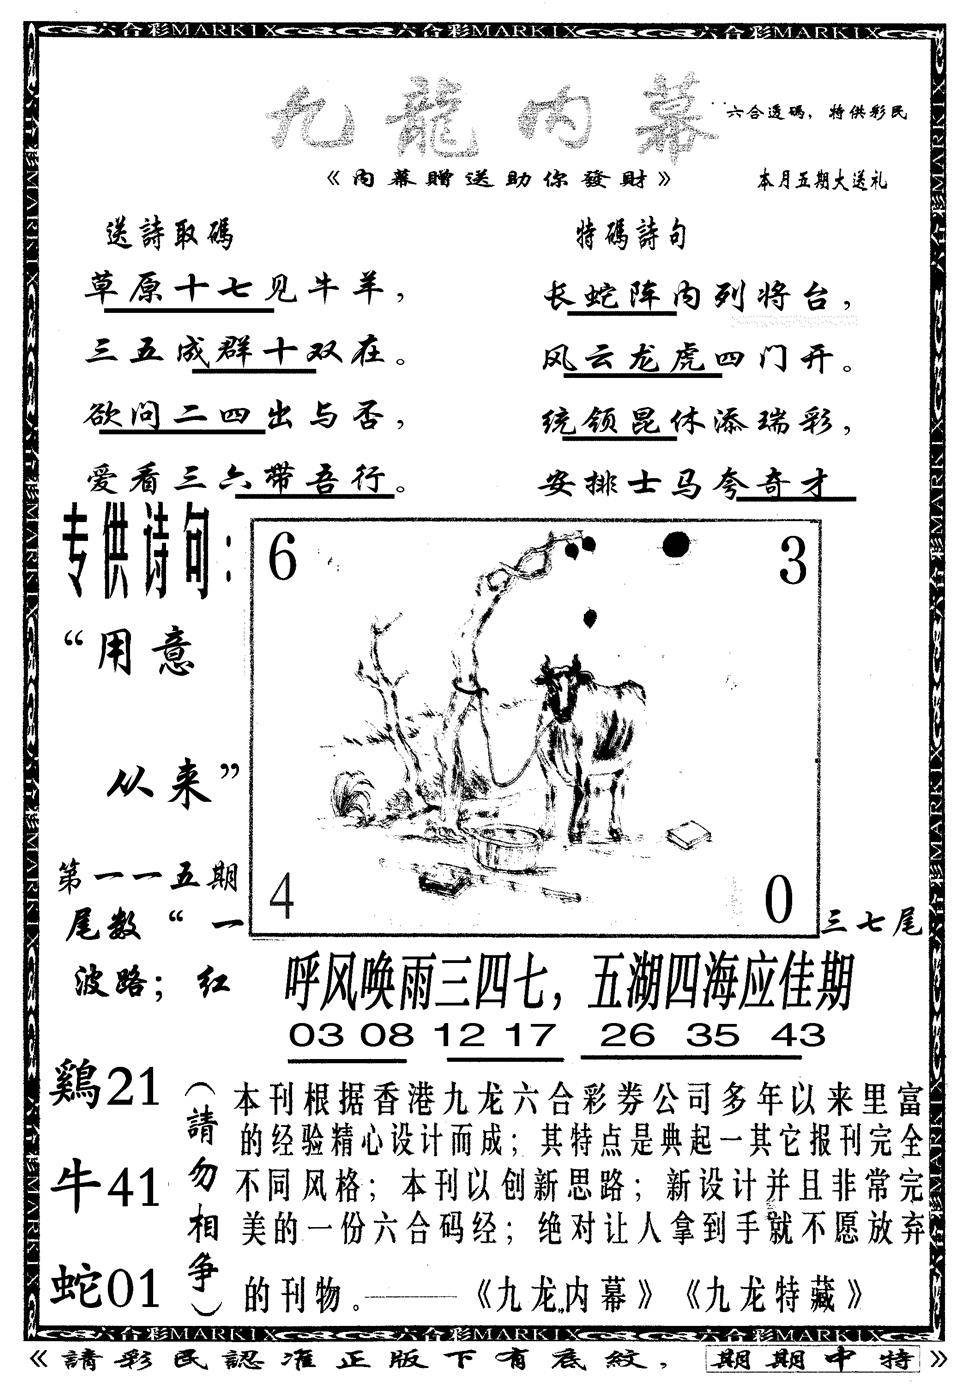 六合彩MARKIX 六合彩MARKIX 六合彩MARKIX
九龍内幕
六合透码，特供彩民
《内幕贈送助你發財》
本月五期大送礼
送詩取碼
草原十七见牛羊，
三五成群十双在。
欲问二四出与否，
爱看三六带吾行。
特碼詩句
长蛇阵内列将台，
风云龙虎四门开。
统领昆休添瑞彩，
安排士马夸奇才
专供诗句：
“用意
从来”
第一一五期
尾数“一
波路；红
6
3
4
0
三七尾
呼风唤雨三四七，五湖四海应佳期
03 08 12 17 26 35 43
鷄21
牛41
蛇01
（請勿相争）
本刊根据香港九龙六合彩券公司多年以来里富
的经验精心设计而成；其特点是典起一其它报刊完全
不同风格；本刊以创新思路；新设计并且非常完
美的一份六合码经；绝对让人拿到手就不愿放弃
的刊物。———《九龙内幕》《九龙特藏》
六合彩MARKIX 六合彩MARKIX 六合彩MARKIX
《請彩民認准正版下有底紋，期期中特》